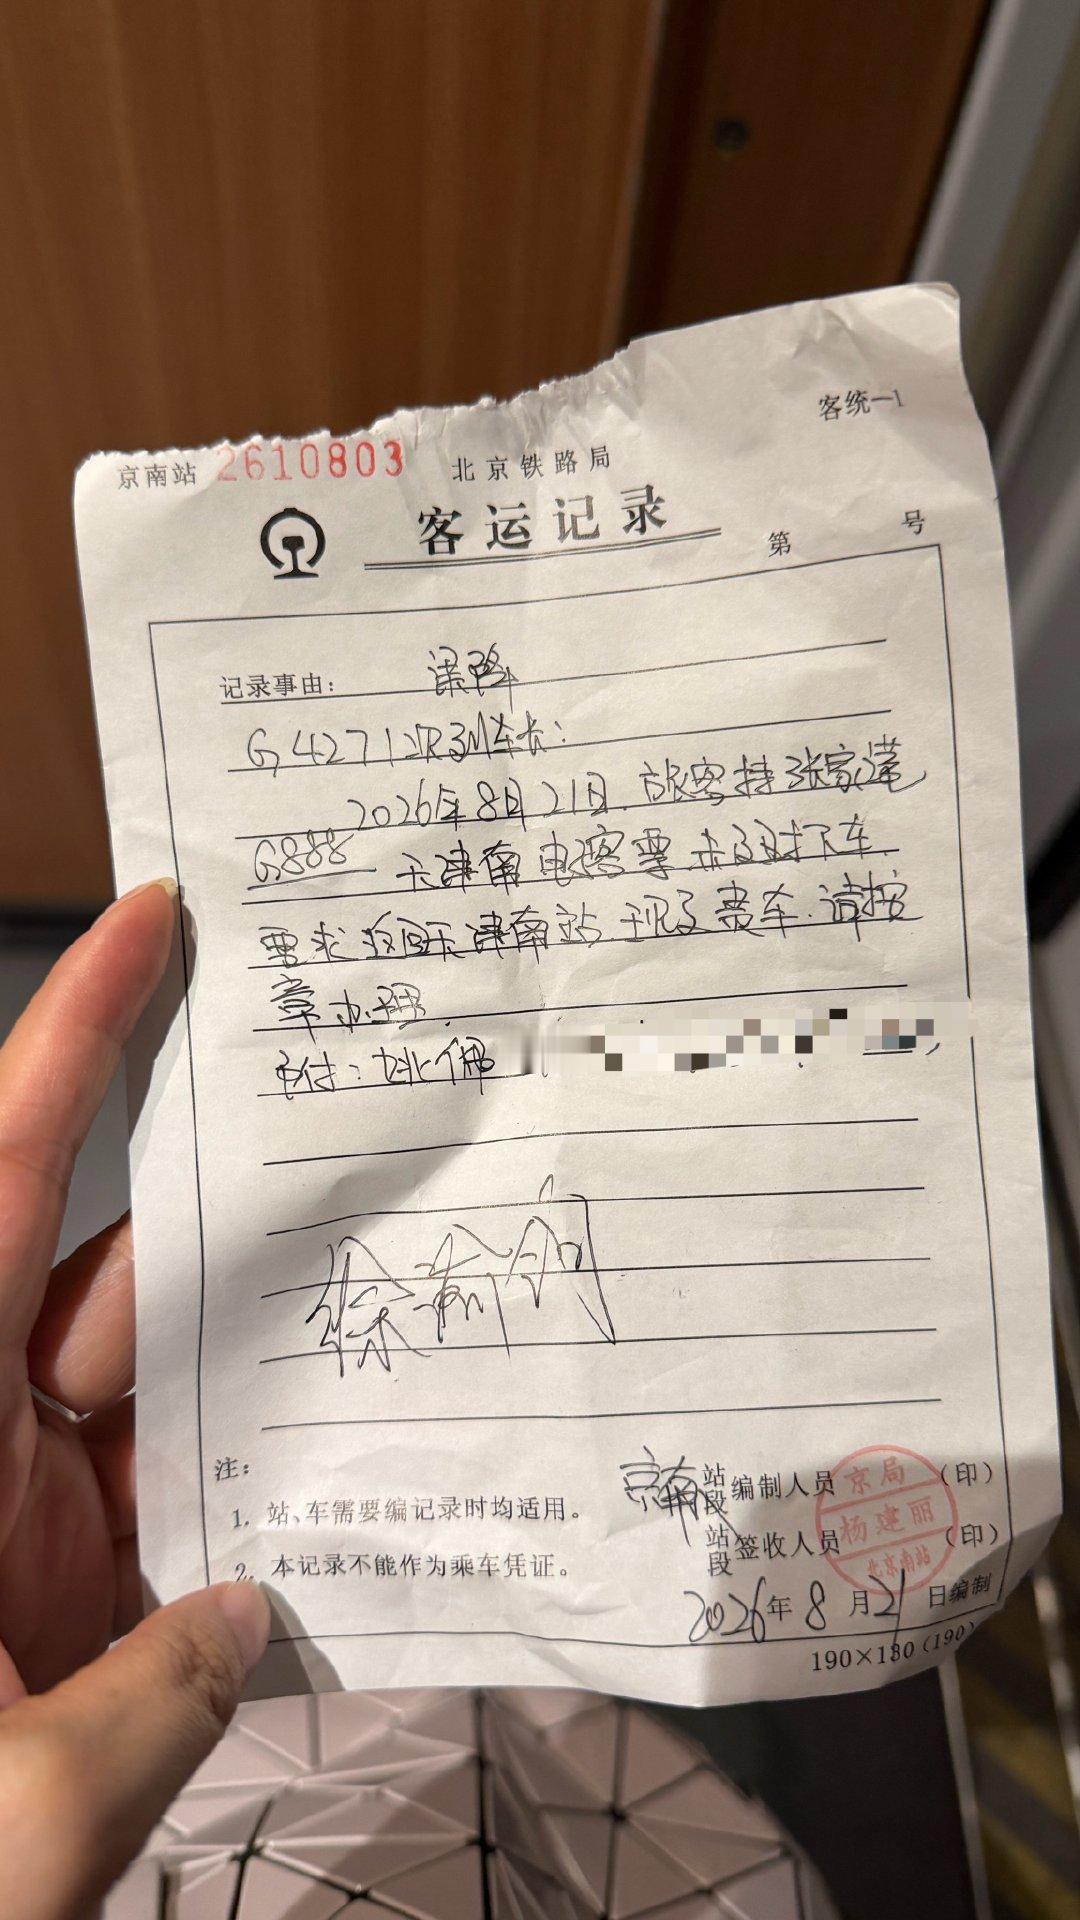 客统一1
京南站 2610803 北京铁路局
客运记录
第 号
记录事由：误降
G4271次列车长：
2026年8月21日.旅客持张家港
G888 天津南电子客票未及时下车.
要求返回天津南站 现交贵车.请按
章办理.
附：姚佩
徐
注：
1. 站、车需要编记录时均适用。
2. 本记录不能作为乘车凭证。
京南 站段 编制人员 （印）
站段 签收人员 （印）
京局
杨建丽
北京南站
2026年8月21日编制
190×130（190）